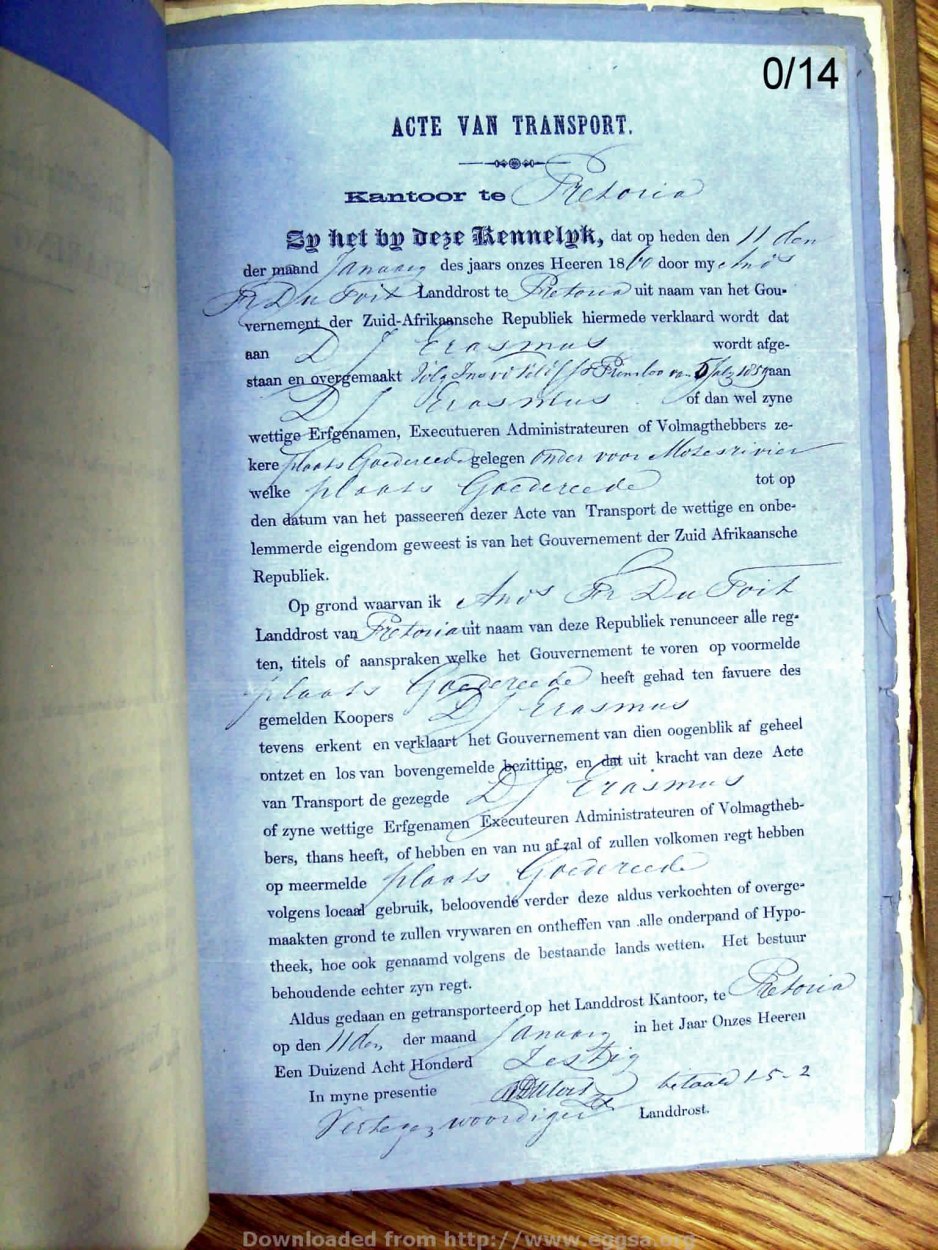 0/14
ACTE VAN TRANSPORT.
Kantoor te Pretoria
Zy het by deze Kennelyk, dat op heden den 11 den
der maand January des jaars onzes Heeren 1860 door my Ands
Fr Du Toit Landdrost te Pretoria uit naam van het Gou-
vernement der Zuid-Afrikaansche Republiek hiermede verklaard wordt dat
aan D J Erasmus wordt afge-
staan en overgemaakt 5 July 1859 aan
D J Erasmus of dan wel zyne
wettige Erfgenamen, Executueren Administrateuren of Volmagthebbers ze-
kere plaats Goedereede gelegen onder voor Mosesrivier
welke plaats Goedereede tot op
den datum van het passeeren dezer Acte van Transport de wettige en onbe-
lemmerde eigendom geweest is van het Gouvernement der Zuid Afrikaansche
Republiek.
Op grond waarvan ik Ands Fr Du Toit
Landdrost van Pretoria uit naam van deze Republiek renunceer alle reg-
ten, titels of aanspraken welke het Gouvernement te voren op voormelde
plaats Goedereede heeft gehad ten favuere des
gemelden Koopers D J Erasmus
tevens erkent en verklaart het Gouvernement van dien oogenblik af geheel
ontzet en los van bovengemelde bezitting, en dat uit kracht van deze Acte
van Transport de gezegde D J Erasmus
of zyne wettige Erfgenamen Executeuren Administrateuren of Volmagtheb-
bers, thans heeft, of hebben en van nu af zal of zullen volkomen regt hebben
op meermelde plaats Goedereede
volgens locaal gebruik, beloovende verder deze aldus verkochten of overge-
maakten grond te zullen vrywaren en ontheffen van alle onderpand of Hypo-
theek, hoe ook genaamd volgens de bestaande lands wetten. Het bestuur
behoudende echter zyn regt.
Aldus gedaan en getransporteerd op het Landdrost Kantoor, te Pretoria
op den 11 den der maand January in het Jaar Onzes Heeren
Een Duizend Acht Honderd Zestig
In myne presentie betaald 1-5-2
Landdrost.
Downloaded from http://www.eggsa.org